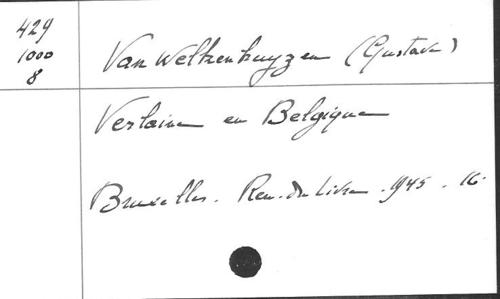 429
1000
8
Vanwelkenhuyzen (Gustave)
Verlaine en Belgique
Bruxelles. Ren. du Livre. 1945. 16°